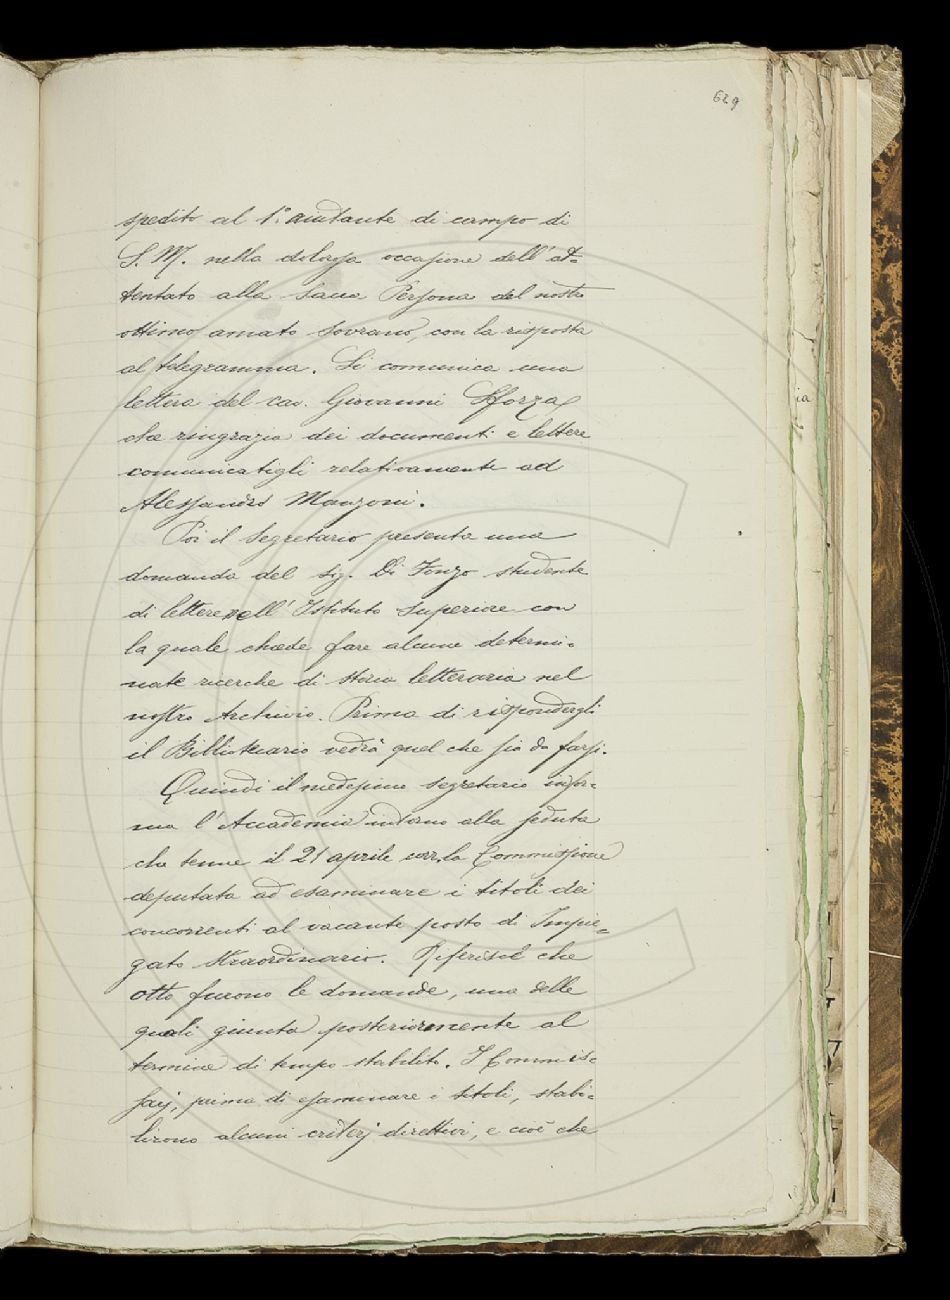 629
spedito al 1.° aiutante di campo di
S. M. nella dolorosa occasione dell'at-
tentato alla Sacra Persona del nostro
ottimo amato Sovrano, con la risposta
al telegramma. Si comunica una
lettera del cav. Giovanni Sforza,
che ringrazia dei documenti e lettere
comunicatigli relativamente ad
Alessandro Manzoni.
Poi il Segretario presenta una
domanda del sig. Di Fonzo studente
di lettere nell'Istituto Superiore con
la quale chiede fare alcune determi-
nate ricerche di storia letteraria nel
nostro Archivio. Prima di rispondergli
il Bibliotecario vedrà quel che sia da farsi.
Quindi il medesimo segretario infor-
ma l'Accademia intorno alla seduta
che tenne il 21 aprile corr. la Commissione
deputata ad esaminare i titoli dei
concorrenti al vacante posto di Impie-
gato straordinario. Riferisce che
otto furono le domande, una delle
quali giunta posteriormente al
termine di tempo stabilito. I Commis-
sarj, prima di esaminare i titoli, stabi-
lirono alcuni criterj direttivi, e cioè che